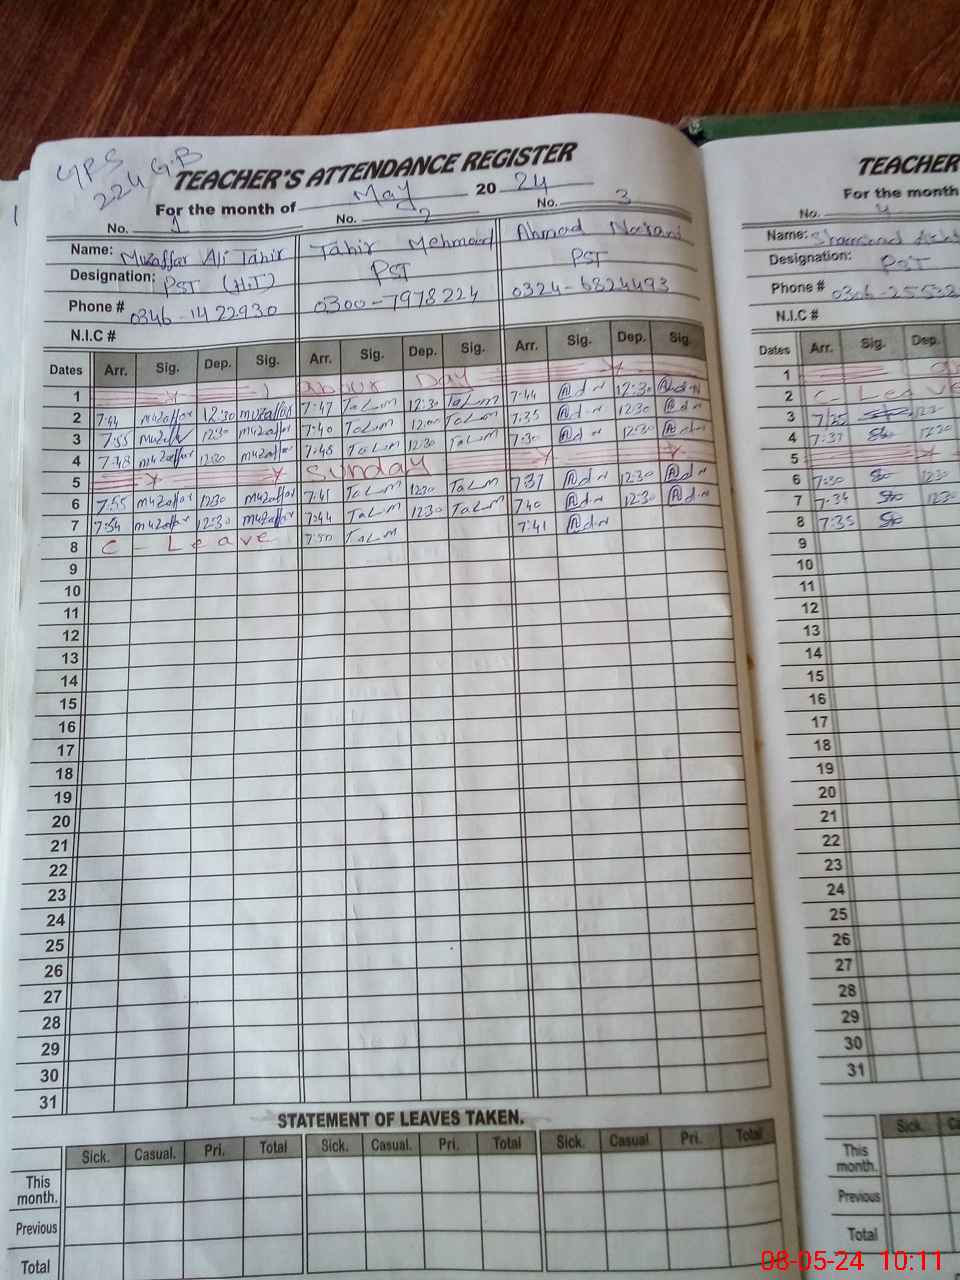 GPS
224 G.B
TEACHER'S ATTENDANCE REGISTER
For the month of May 2024
No. 1 No. 2 No. 3
Name: Muzaffar Ali Tahir Tahir Mehmood Ahmad
Designation: PST (H.T) PST PST
Phone # 0346-1422930 0300-7978224 0324-6824493
N.I.C #
Dates Arr. Sig. Dep. Sig. Arr. Sig. Dep. Sig. Arr. Sig. Dep. Sig.
1 Labour Day
2 7:44 muzaffar 12:30 muzaffar 7:47 12:30 7:44 12:30
3 7:55 muzaffar 12:30 muzaffar 7:40 7:35 12:30
4 7:48 muzaffar 12:30 muzaffar 7:48 12:30 7:30 12:30
5 Sunday
6 7:55 muzaffar 12:30 muzaffar 7:41 12:30 7:37 12:30
7 7:54 muzaffar 12:30 muzaffar 7:44 12:30 7:40 12:30
8 C-Leave 7:50 7:41
9
10
11
12
13
14
15
16
17
18
19
20
21
22
23
24
25
26
27
28
29
30
31
STATEMENT OF LEAVES TAKEN.
Sick. Casual. Pri. Total Sick. Casual. Pri. Total Sick. Casual. Pri. Total
This month.
Previous
Total
TEACHER
For the month
No. 4
Name:
Designation: PST
Phone # 0306-25532
N.I.C #
Dates Arr. Sig. Dep.
1
2 C-Leave
3 7:35 12:30
4 7:37 12:30
5
6 7:30 12:30
7 7:34 12:30
8 7:35
9
10
11
12
13
14
15
16
17
18
19
20
21
22
23
24
25
26
27
28
29
30
31
Sick.
This month.
Previous
Total
08-05-24 10:11